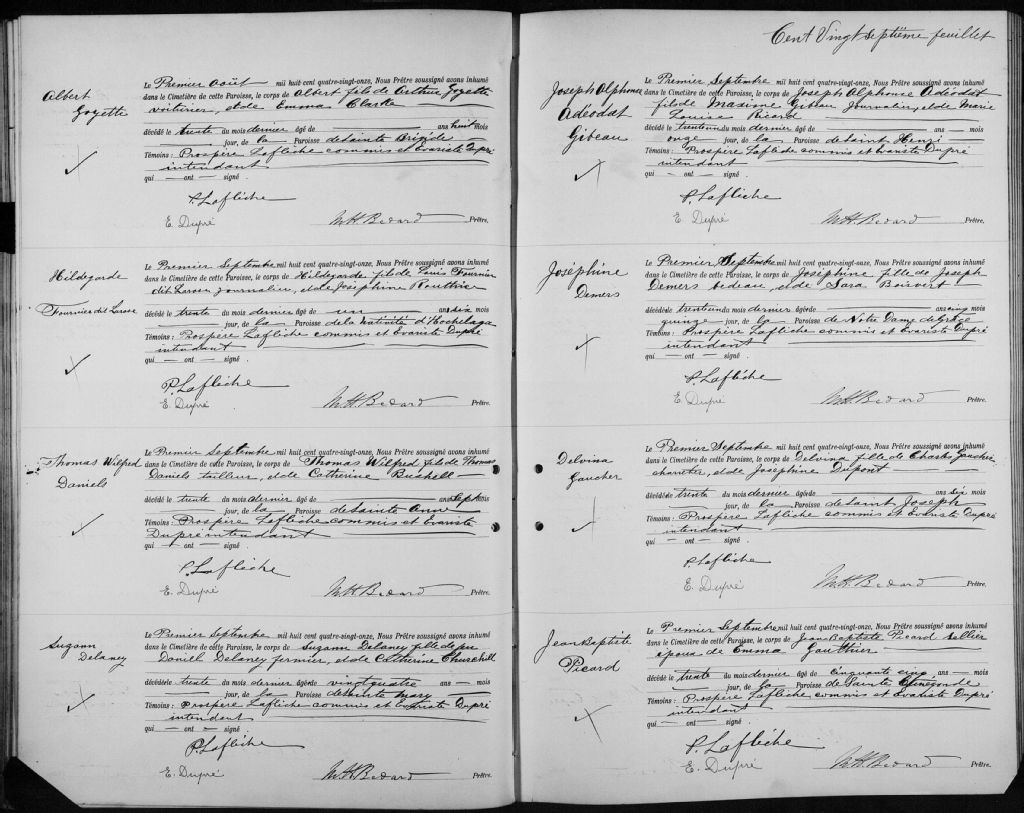 Albert
Goyette
Le Premier Août mil huit cent quatre-vingt-onze, Nous Prêtre soussigné avons inhumé
dans le Cimetière de cette Paroisse, le corps de Albert fils de Arthur Goyette
voiturier, et de Emma Clarke
décédé le trente du mois dernier âgé de ans huit mois
jour, de la Paroisse de Sainte Brigide
Témoins : Prospère Laflèche commis et Evariste Dupré
intendant
qui — ont — signé
P. Laflèche
E. Dupré M. H. Bedard Prêtre.
Hildegarde
Fournier dit Larose
Le Premier Septembre mil huit cent quatre-vingt-onze, Nous Prêtre soussigné avons inhumé
dans le Cimetière de cette Paroisse, le corps de Hildegarde fils de Louis Fournier
dit Larose journalier, et de Joséphine Routhier
décédé le trente du mois dernier âgé de un an six mois
jour, de la Paroisse de la Nativité d'Hochelaga
Témoins : Prospère Laflèche commis et Evariste Dupré
intendant
qui — ont — signé
P. Laflèche
E. Dupré M. H. Bedard Prêtre.
Thomas Wilfred
Daniels
Le Premier Septembre mil huit cent quatre-vingt-onze, Nous Prêtre soussigné avons inhumé
dans le Cimetière de cette Paroisse, le corps de Thomas Wilfred fils de Thomas
Daniels tailleur, et de Catherine Bushell
décédé le trente du mois dernier âgé de ans sept mois
jour, de la Paroisse de Sainte Anne
Témoins : Prospère Laflèche commis et Evariste
Dupré intendant
qui — ont — signé
P. Laflèche
E. Dupré M. H. Bedard Prêtre.
Suzann
Delaney
Le Premier Septembre mil huit cent quatre-vingt-onze, Nous Prêtre soussigné avons inhumé
dans le Cimetière de cette Paroisse, le corps de Suzann Delaney fille de feu
Daniel Delaney fermier, et de Catherine Churchill
décédé le trente du mois dernier âgé de vingt quatre ans — mois
jour, de la Paroisse de Saint Mary
Témoins : Prospère Laflèche commis et Evariste Dupré
intendant
qui — ont — signé
P. Laflèche
E. Dupré M. H. Bedard Prêtre.
Cent Vingt Septième feuillet
Joseph Alphonse
Adéodat
Gibeau
Le Premier Septembre mil huit cent quatre-vingt-onze, Nous Prêtre soussigné avons inhumé
dans le Cimetière de cette Paroisse, le corps de Joseph Alphonse Adéodat
fils de Maxime Gibeau Journalier, et de Marie
Louise Ricard
décédé le trente un du mois dernier âgé de ans — mois
onze jour, de la Paroisse de Saint Henri
Témoins : Prospère Laflèche commis et Evariste Dupré
intendant
qui — ont — signé
P. Laflèche
E. Dupré M. H. Bedard Prêtre.
Joséphine
Demers
Le Premier Septembre mil huit cent quatre-vingt-onze, Nous Prêtre soussigné avons inhumé
dans le Cimetière de cette Paroisse, le corps de Joséphine fille de Joseph
Demers bedeau, et de Sara Boisvert
décédé le trente un du mois dernier âgé de ans cinq mois
quinze jour, de la Paroisse de Notre Dame de Grâce
Témoins : Prospère Laflèche commis et Evariste Dupré
intendant
qui — ont — signé
P. Laflèche
E. Dupré M. H. Bedard Prêtre.
Delvina
Gaucher
Le Premier Septembre mil huit cent quatre-vingt-onze, Nous Prêtre soussigné avons inhumé
dans le Cimetière de cette Paroisse, le corps de Delvina fille de Charles Gaucher
charretier, et de Josephine Dupont
décédé le trente du mois dernier âgé de ans six mois
jour, de la Paroisse de Saint Joseph
Témoins : Prospère Laflèche commis et Evariste Dupré
intendant
qui — ont — signé
P. Laflèche
E. Dupré M. H. Bedard Prêtre.
Jean Baptiste
Picard
Le Premier Septembre mil huit cent quatre-vingt-onze, Nous Prêtre soussigné avons inhumé
dans le Cimetière de cette Paroisse, le corps de Jean Baptiste Picard Sellier
époux de Emma Gauthier
décédé le trente du mois dernier âgé de cinquante cinq ans — mois
jour, de la Paroisse de Sainte Cunégonde
Témoins : Prospère Laflèche commis et Evariste Dupré
intendant
qui — ont — signé
P. Laflèche
E. Dupré M. H. Bedard Prêtre.